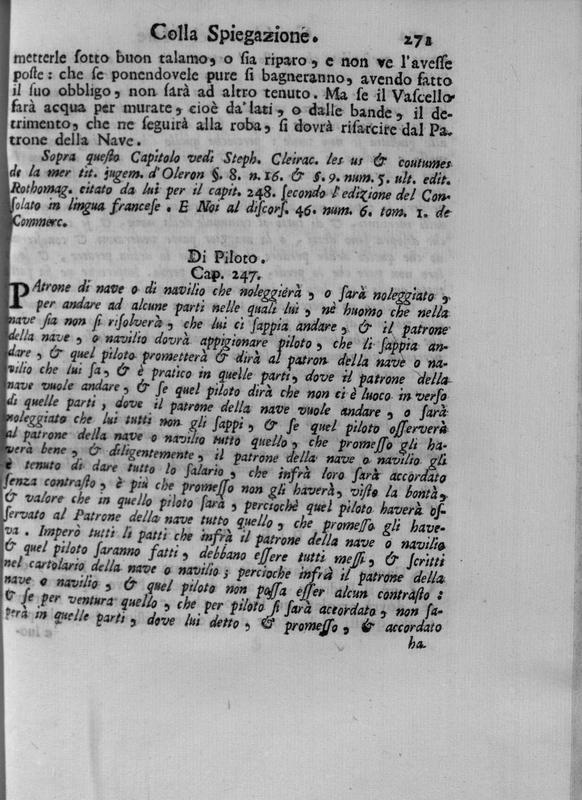 Colla Spiegazione. 271
metterle ſotto buon talamo, o ſia riparo, e non ve l'aveſſe
poſte: che ſe ponendovele pure ſi bagneranno, avendo fatto
il ſuo obbligo, non ſarà ad altro tenuto. Ma ſe il Vaſcello
farà acqua per murate, cioè da'lati, o dalle bande, il de-
trimento, che ne ſeguirà alla roba, ſi dovrà riſarcire dal Pa-
trone della Nave.
Sopra queſto Capitolo vedi Steph. Cleirac. les us & coutumes
de la mer tit. jugem. d'Oleron §. 8. n. 16. & §. 9. num. 5. ult. edit.
Rothomag. citato da lui per il capit. 248. ſecondo l'edizione del Con-
ſolato in lingua franceſe. E Noi al diſcorſ. 46. num. 6. tom. 1. de
Commerc.
Di Piloto.
Cap. 247.
PAtrone di nave o di navilio che noleggierà, o ſarà noleggiato,
per andare ad alcune parti nelle quali lui, nè huomo che nella
nave ſia non ſi riſolverà, che lui ci ſappia andare, & il patrone
della nave, o navilio dovrà appigionare piloto, che li ſappia an-
dare, & quel piloto prometterà & dirà al patron della nave o na-
vilio che lui ſa, & è pratico in quelle parti, dove il patrone della
nave vuole andare, & ſe quel piloto dirà che non ci è luoco in verſo
di quelle parti, dove il patrone della nave vuole andare, o ſarà
noleggiato che lui tutti non gli ſappi, & ſe quel piloto oſſerverà
al patrone della nave o navilio tutto quello, che promeſſo gli ha-
verà bene, & diligentemente, il patrone della nave o navilio gli
è tenuto di dare tutto lo ſalario, che infrà loro ſarà accordato
ſenza contraſto, è più che promeſſo non gli haverà, viſto la bontà,
& valore che in quello piloto ſarà, perciochè quel piloto haverà oſ-
ſervato al Patrone della nave tutto quello, che promeſſo gli have-
va. Imperò tutti li patti che infrà il patrone della nave o navilio
& quel piloto ſaranno fatti, debbano eſſere tutti meſſi, & ſcritti
nel cartolario della nave o navilio; percioche infrà il patrone della
nave o navilio, & quel piloto non poſſa eſſer alcun contraſto:
& ſe per ventura quello, che per piloto ſi ſarà accordato, non ſa-
perà in quelle parti, dove lui detto, & promeſſo, & accordato
ha